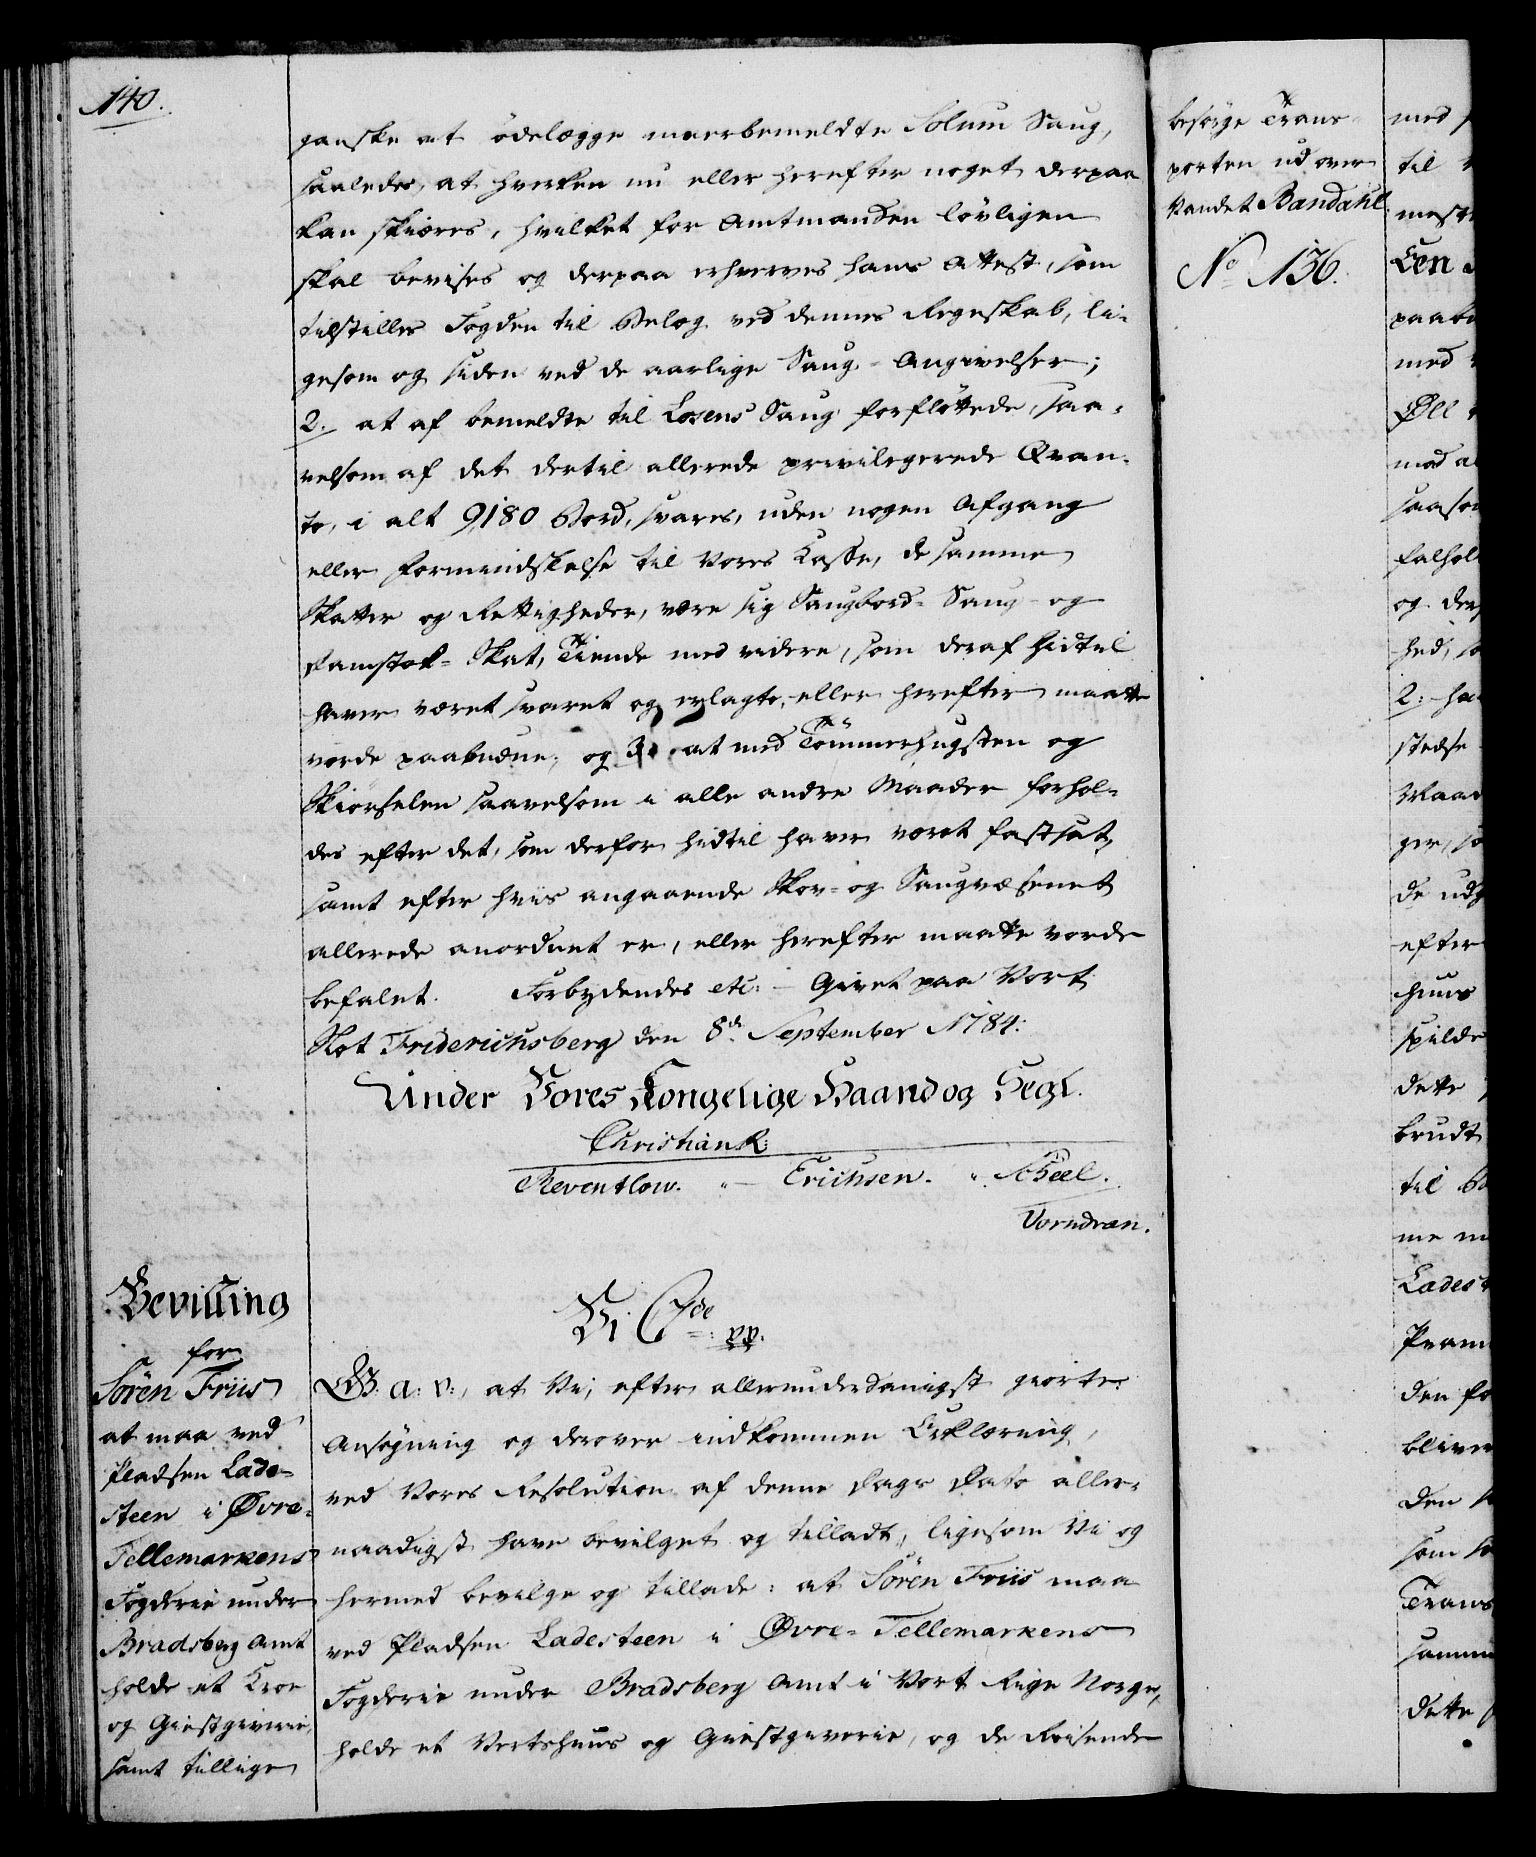 140.
ganske at ödelægge meerbemeldte Solum Saug,
saaledes, at hverken nu eller herefter noget derpaa
kan skiæres, hvilket for Amtmanden lovligen
skal bevises og derpaa erhverves hans Attest, som
tilstilles Fogden til Belæg ved dennes Regnskab, li-
gesom og siden ved de aarlige Saug-Angivelser;
2. at af bemeldte til Losens Saug forflöttede, saa-
velsom af det dertil allerede privilegerede Qvan-
to, i alt 9180 Bord, svares, uden nogen Afgang
eller Formindskelse til Vores Casse, de samme
Skatter og Rettigheder, være sig Saugbord- Saug- og
Damstok- Skat, Tiende med videre, som deraf hidtil
haver været svaret og erlagte, eller herefter maatte
vorde paabudne; og 3. at med Tömmerhugsten og
Skiörselen saavelsom i alle andre Maader forhol-
des efter det, som derfor hidtil haver været fastsat,
samt efter hvis angaaende Skov- og Saugvæsenet
allerede anordnet er, eller herefter maatte vorde
befalet. Forbydendes etc: - Givet paa Vort
Slot Friderichsberg den 8de September 1784:
Under Vores Kongelige Haand og Segl.
Christian R:
Reventlow. " - Erichsen. " Scheel.
Vorndran.
Bevilling
for
Sören Friis
at maa ved
Pladsen Lade-
steen i Øvre-
Tellemarkens
Fogderie under
Bradsberg Amt
holde et Kroe
og Giestgiverie,
samt tillige
Vi C 7de pp.
G. a: v:, at Vi, efter allerunderdanigst giorte
Ansøgning og derover indkommen Erklæring,
ved Vores Resolution af denne Dags Dato aller-
naadigst have bevilget og tilladt, ligesom Vi og
hermed bevilge og tillade: at Sören Friis maa
ved Pladsen Ladesteen i Øvre- Tellemarkens
Fogderie under Bradsberg Amt i Vort Rige Norge,
holde et Vertshuus og Giestgiverie, og de Reisende
besørge Trans-
porten ud over
Vandet Bandahl.
No 136.
med
til
mest
Cen
paab
med
Øll
mod a
saaso
falhol
og der
hed, so
2: ha
stedse
Maad
ger, so
de udg
efter
huus
spilde
dette
brudt
til B
me m
Ladest
Pram
den fo
bliver
den
som so
Trans
samm
dette